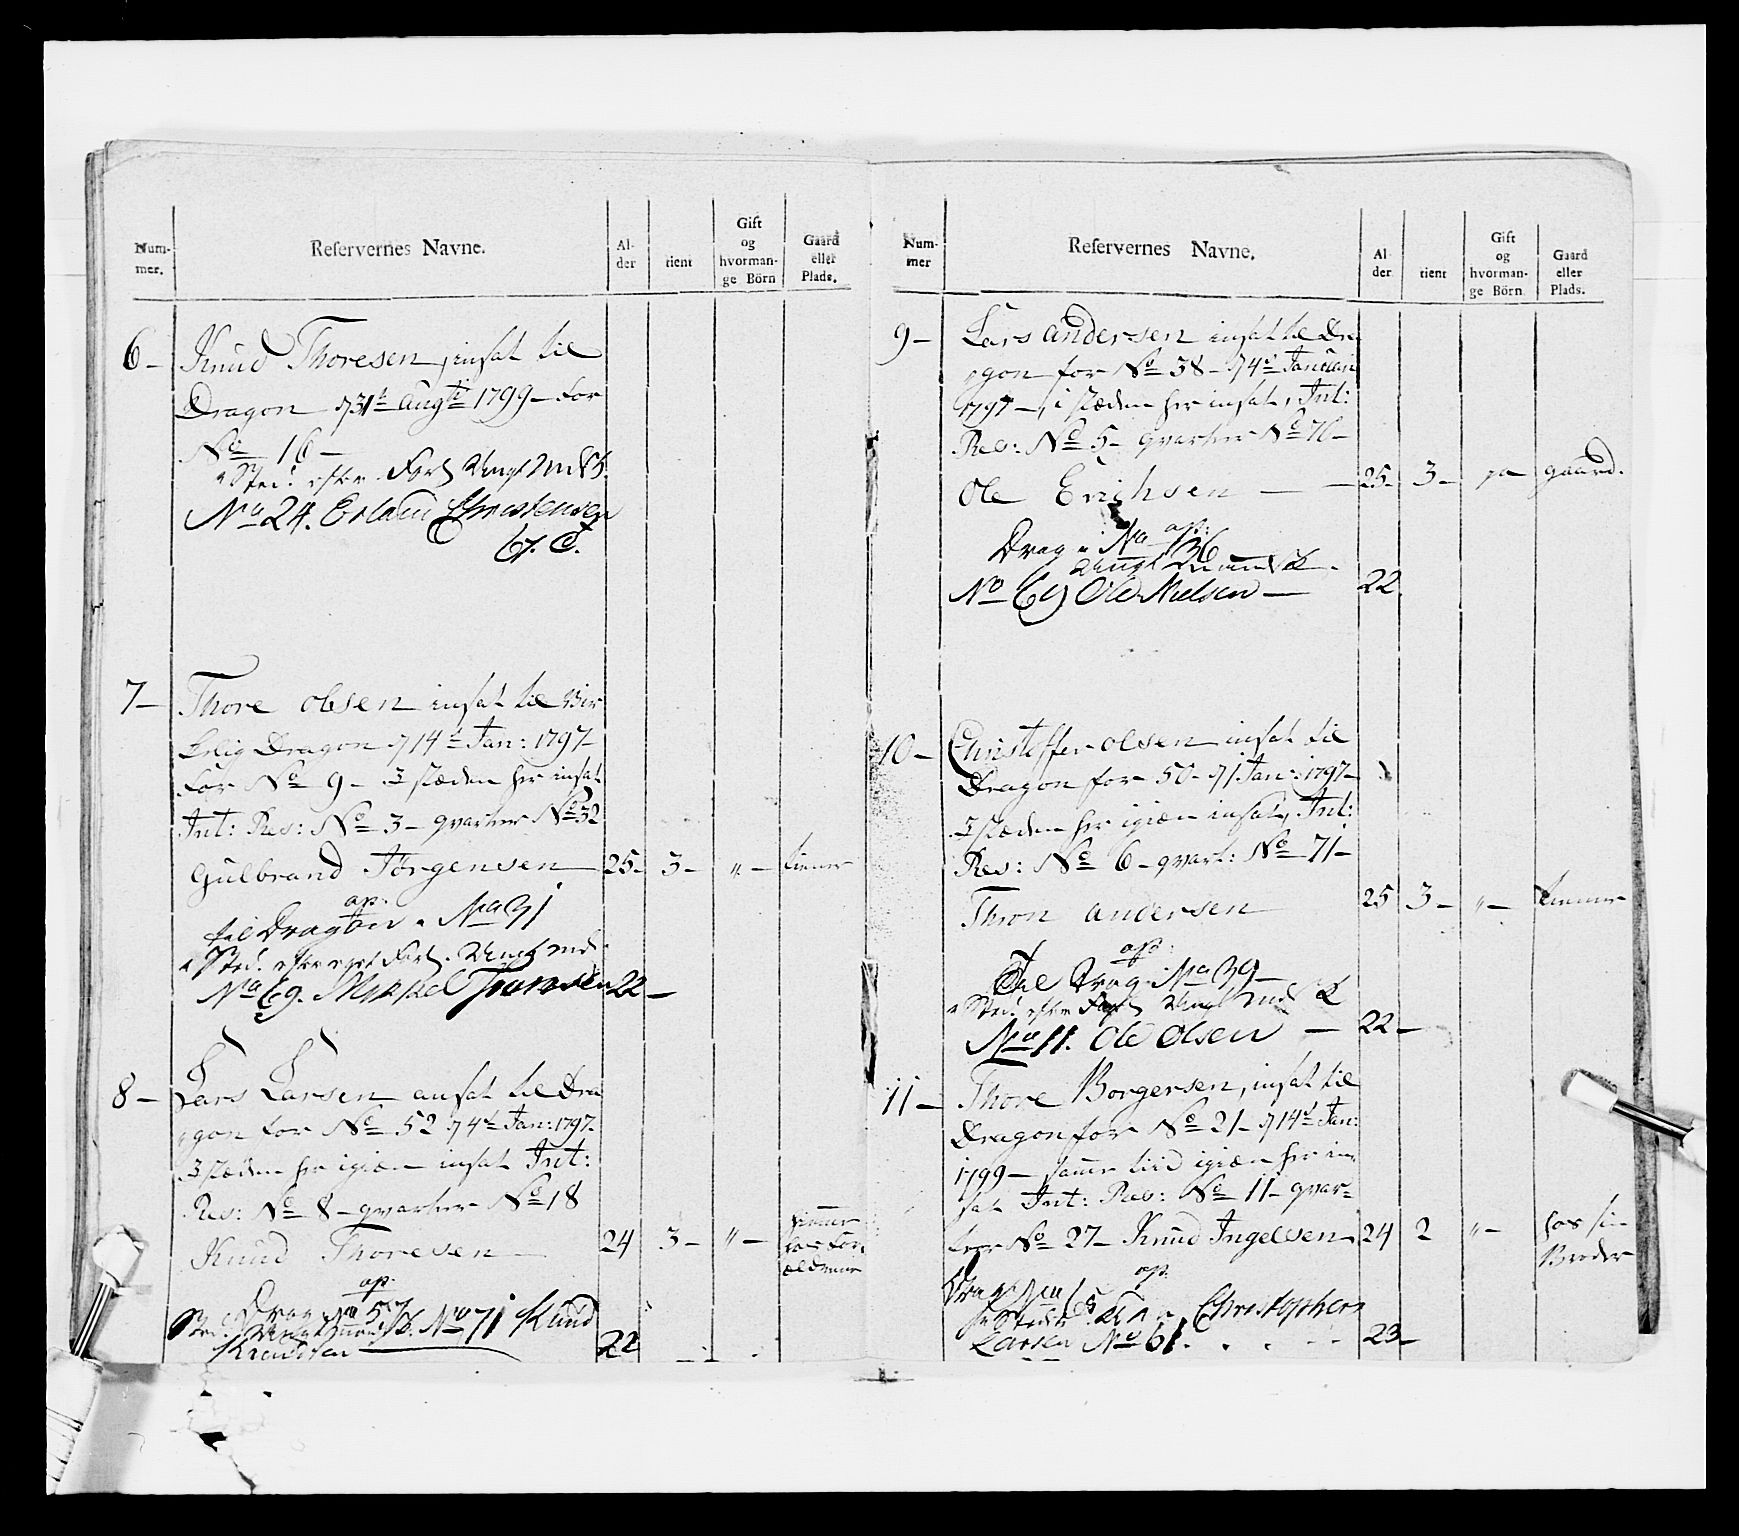 Num-
mer.
Reservernes Navne.
Al-
der
tient
Gift
og
hvorman-
ge Börn
Gaard
eller
Plads.
6 - Knud Thoresen, insat til
Dragon d 31te Augti 1799 - for
No 16 -
i Sted:
No 24. Christensen
7 - Thore Olsen insat til Vir
kelig Dragon d 14de Jan: 1797 -
for No 9 - I stæden her insat
Int: Res: No 3 - qvarteer No 32
Gulbrand Jörgensen 25 - 3 - " -
ap.
til Dragon No 31
i Sted.
No 69. Mikkel 22 -
8 - Lars Larsen ansat til Dra
gon for No 52 d 4de Jan: 1797 -
I stæden her igien insat Int:
Res: No 8 - qvarteer No 18
Knud Thoresen - 24 3 - " -
ap.
Drag No 57
No 71 Knud
Knudsen 22
Num-
mer
Reservernes Navne.
Al-
der
tient
Gift
og
hvorman-
ge Börn
Gaard
eller
Plads.
9 - Lars Andersen insat til Dra
gon for No 38 - d 4de Januari
1797 -, i stæden her insat, Int:
Res: No 5 - qvarteer No 76 -
Ole Erichsen - 25 - 3 - ja gaard.
ap:
Drag No 36
No 69 Ole Nielsen - 22
10 - Christoffer Olsen insat til
Dragon for 50 - d 1 Jan: 1797 -
I stæden her igien insat, Int:
Res: No 6 - qvart: No 71 -
Thron Andersen 25 3 - " -
ap:
Til Drag. No 39 -
i Sted:
No 11. Ole Olsen - 22 -
11 - Thore Borgersen, insat til
Dragon for No 21 - d 14de Jan:
1799 - samme tiid igien her in
sat Int: Res: No 11 - qvar-
teer No 27 - Knud Ingelsen 24 2 " - hos sin
Broder
ap.
Drag
Christophen
Larsen No 61. 23 -